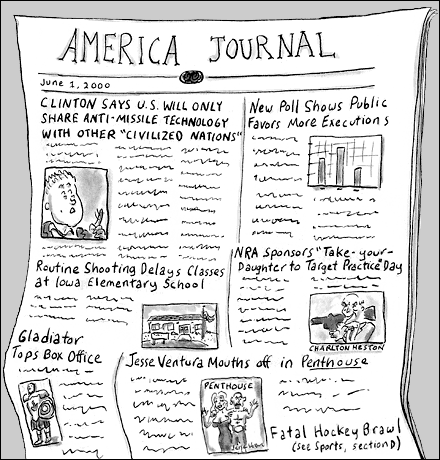 AMERICA JOURNAL
June 1, 2000
CLINTON SAYS U.S. WILL ONLY
SHARE ANTI-MISSILE TECHNOLOGY
WITH OTHER "CIVILIZED NATIONS"
New Poll Shows Public
Favors More Executions
Routine Shooting Delays Classes
at Iowa Elementary School
NRA Sponsors "Take-your-
Daughter to Target Practice" Day
CHARLTON HESTON
Gladiator
Tops Box Office
Jesse Ventura Mouths off in Penthouse
PENTHOUSE
Fatal Hockey Brawl
(see Sports, section D)